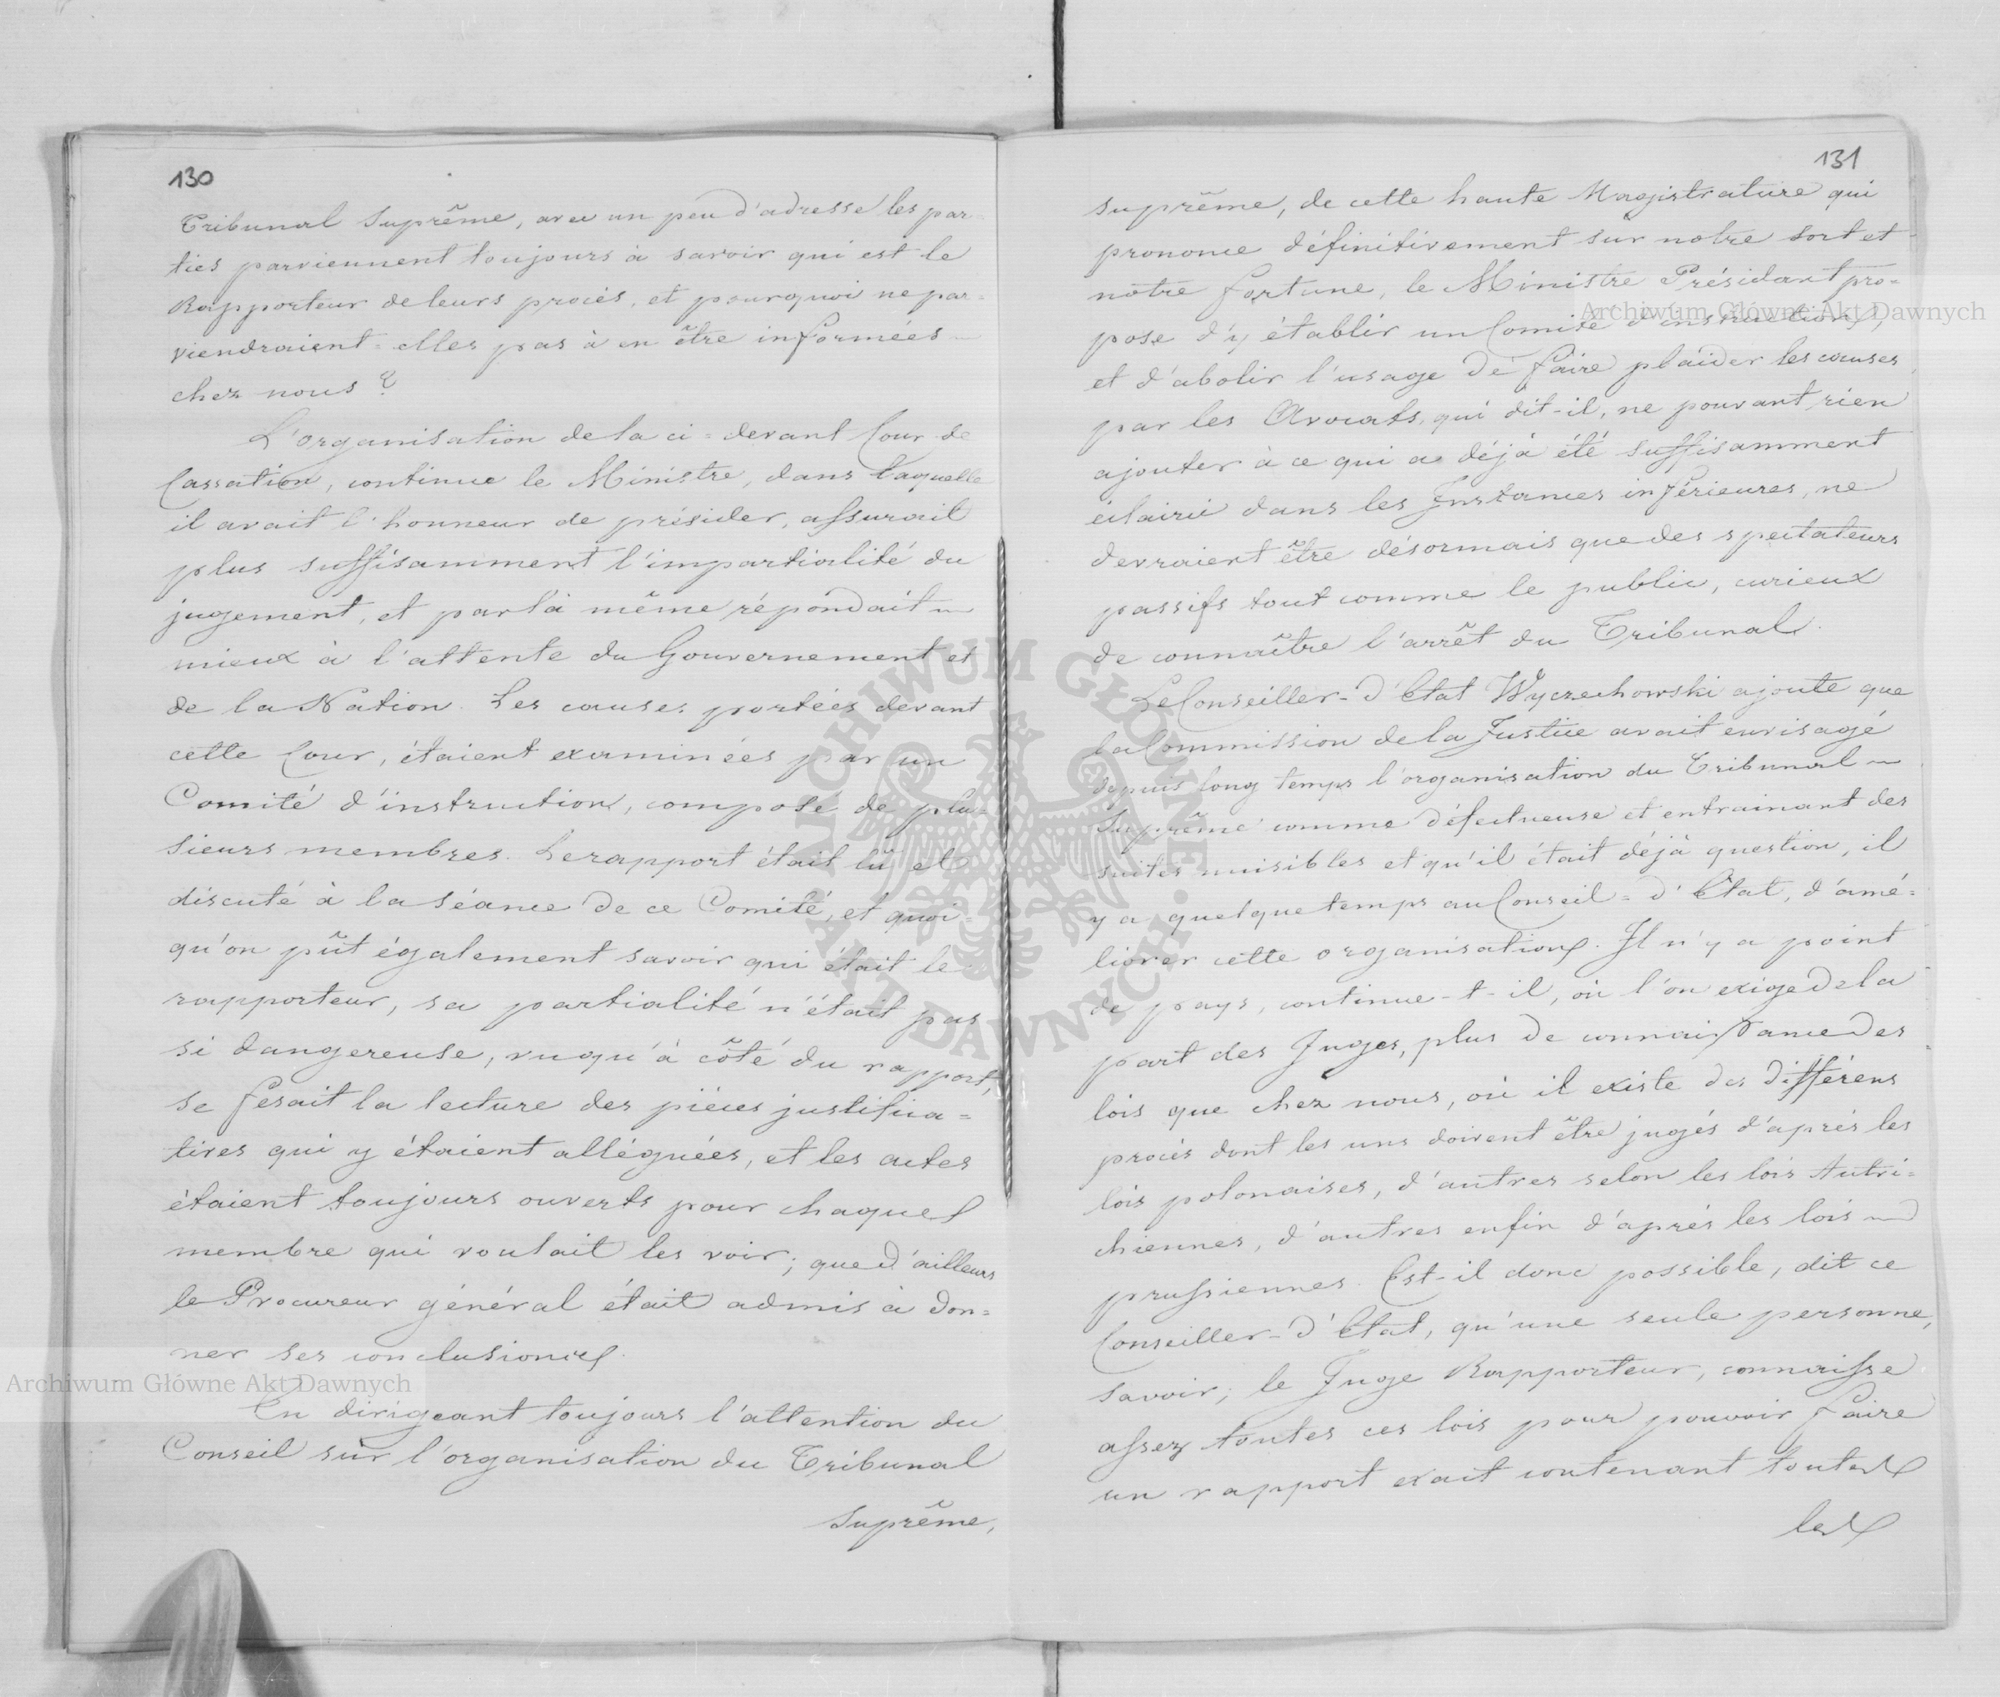 130
Tribunal Suprême, avec un peu d'adresse les par=
ties parviennent toujours à savoir qui est le
Rapporteur de leurs procès, et pourquoi ne par=
viendraient=elles pas à en être informées
chez nous?
L'organisation de la ci=devant Cour de
Cassation, continue le Ministre, dans laquelle
il avait l'honneur de présider, assurait
plus suffisamment l'impartialité du
jugement, et par là même répondait
mieux à l'attente du Gouvernement et
de la Nation. Les causes portées devant
cette Cour, étaient examinées par un
Comité d'instruction, composé de plu=
sieurs membres. Le rapport était lû et
discuté à la séance de ce Comité, et quoi=
qu'on pût également savoir qui était le
rapporteur, sa partialité n'était pas
si dangereuse, vu qu'à côté du rapport,
se fesait la lecture des pièces justifica=
tives qui y étaient alléguées, et les actes
étaient toujours ouverts pour chaque
membre qui voulait les voir; que d'ailleurs
le Procureur général était admis à don=
ner ses conclusiones.
En dirigeant toujours l'attention du
Conseil sur l'organisation du Tribunal
Suprême,
131
suprême, de cette haute Magistrature qui
prononce définitivement sur notre sort et
notre fortune, le Ministre Présidant pro=
pose d'y établir un Comité d'instruction,
et d'abolir l'usage de faire plaider les causes
par les Avocats, qui dit-il, ne pouvant rien
ajouter à ce qui a déjà été suffisamment
éclairci dans les Instances inférieures, ne
devraient être désormais que des spectateurs
passifs tout comme le public, curieux
de connaître l'arrêt du Tribunal.
Le Conseiller-d'Etat Wyczechowski ajoute que
la Commission de la Justice avait envisagé
depuis long temps l'organisation du Tribunal
Suprême comme défectueuse et entrainant des
suites nuisibles et qu'il était déjà question, il
y a quelque temps au Conseil=d'Etat, d'amé=
liorer cette organisation. Il n'y a point
de pays, continue-t-il, où l'on exige de la
part des Juges, plus de connaissance des
lois que chez nous, où il existe des différens
procès dont les uns doivent être jugés d'après les
lois polonaises, d'autres selon les lois Autri=
chiennes, d'autres enfin d'après les lois
prussiennes. Est-il donc possible, dit ce
Conseiller-d'Etat, qu'une seule personne,
savoir; le Juge Rapporteur, connaisse
assez toutes ces lois pour pouvoir faire
un rapport exact contenant toutes
les
Archiwum Główne Akt Dawnych
Archiwum Główne Akt Dawnych
ARCHIWUM GŁÓWNE AKT DAWNYCH